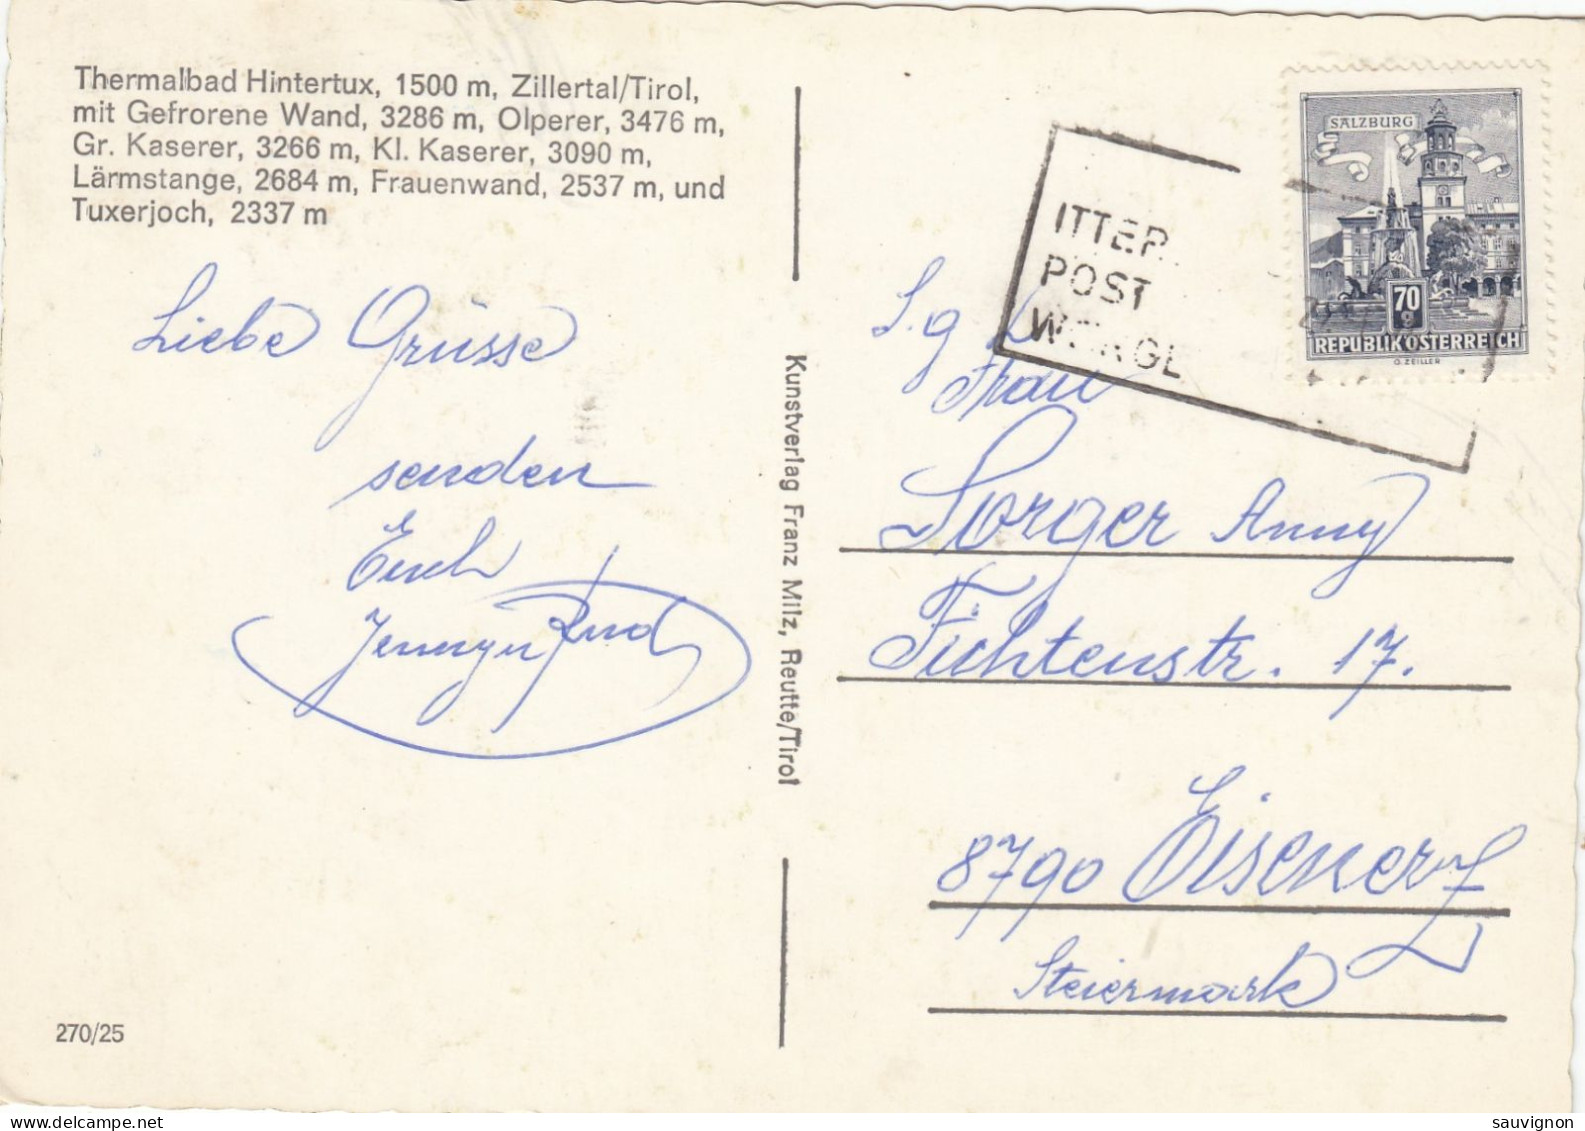 Thermalbad Hintertux, 1500 m, Zillertal/Tirol,
mit Gefrorene Wand, 3286 m, Olperer, 3476 m,
Gr. Kaserer, 3266 m, Kl. Kaserer, 3090 m,
Lärmstange, 2684 m, Frauenwand, 2537 m, und
Tuxerjoch, 2337 m
Liebe Grüsse
senden
Euch
270/25
Kunstverlag Franz Milz, Reutte/Tirol
ITTER
POST
WÖRGL
SALZBURG
70
g
REPUBLIK ÖSTERREICH
O. ZEILLER
S. g
Frau
Sorger Anny
Fichtenstr. 17.
8790 Eisenerz
Steiermark
www.delcampe.net
sauvignon